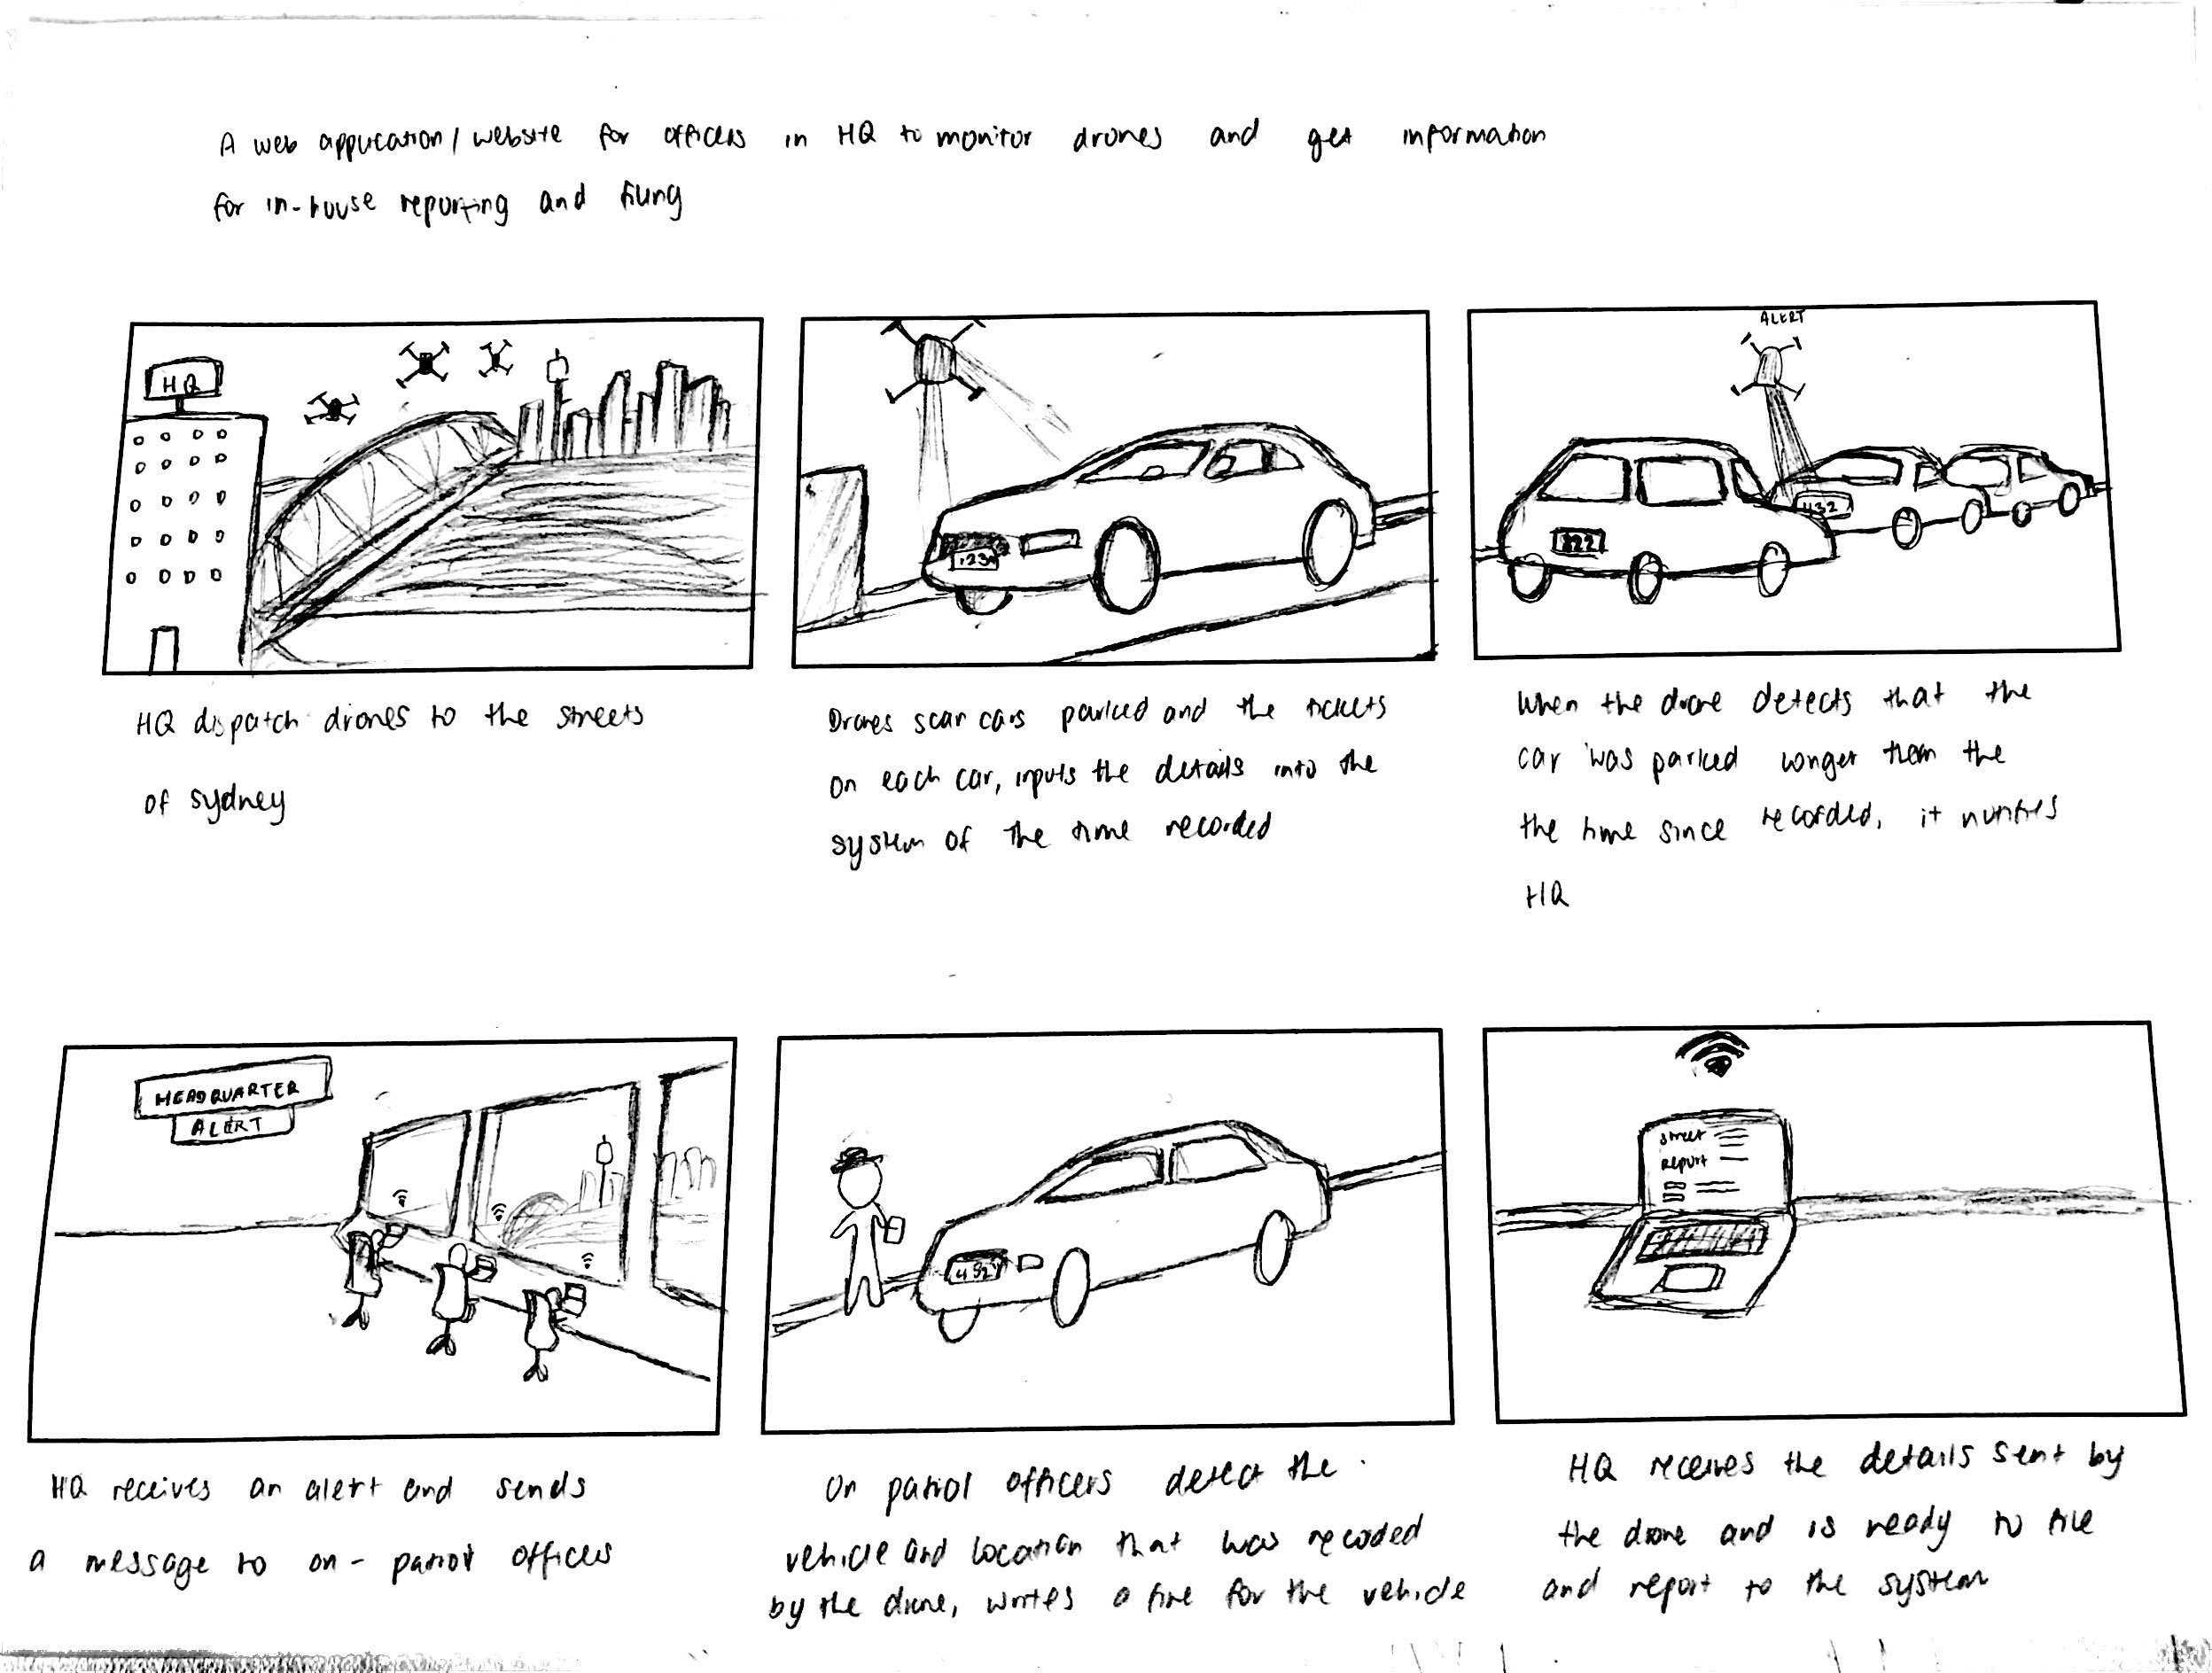 A web application/website for officers in HQ to monitor drones and get information
for in-house reporting and filing
HQ
ALERT
123
822
432
HQ dispatch drones to the streets
of Sydney
Drones scan cars parked and the tickets
on each car, inputs the details into the
system of the time recorded
When the drone detects that the
car was parked longer than the
the time since recorded, it notifies
HQ
HEADQUARTER
ALERT
432
Street
Report
HQ receives an alert and sends
a message to on-patrol officers
On patrol officers detect the
vehicle and location that was recoded
by the drone, writes a fine for the vehicle
HQ receives the details sent by
the drone and is ready to file
and report to the system